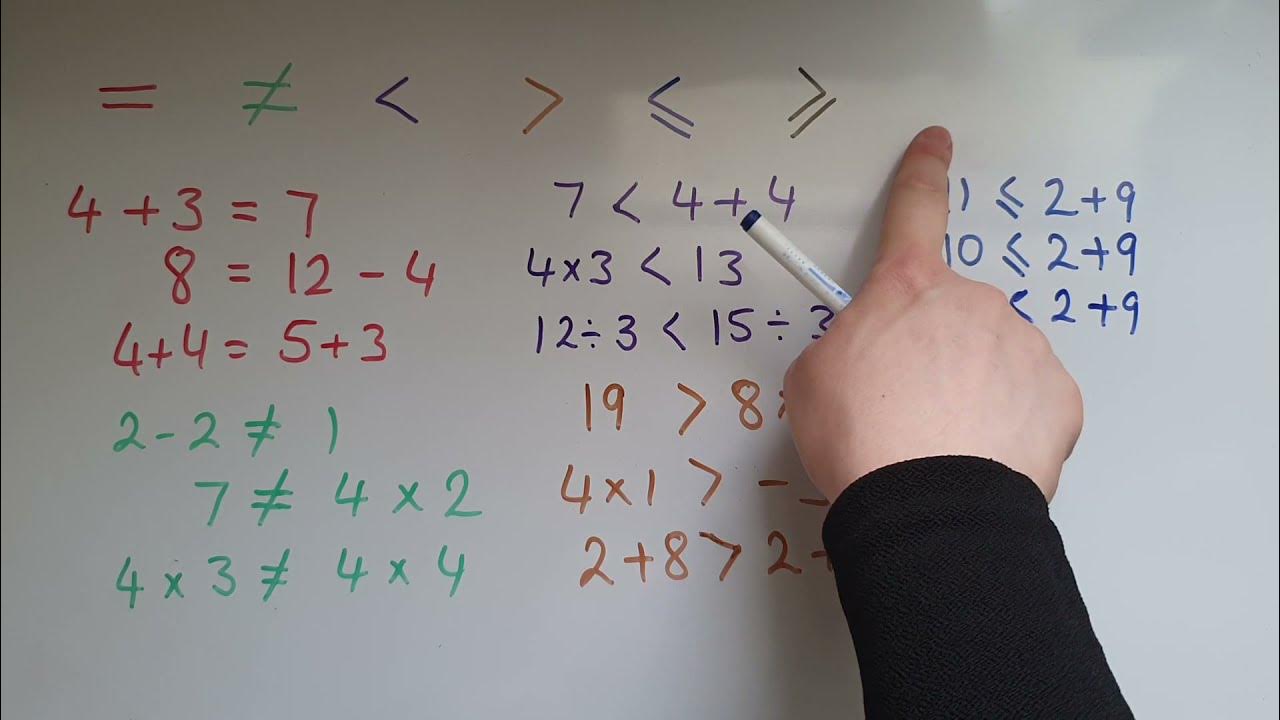 = ≠ < > ⩽ ⩾
4 + 3 = 7
8 = 12 - 4
4+4 = 5+3
2-2 ≠ 1
7 ≠ 4 × 2
4 × 3 ≠ 4 × 4
7 < 4 + 4
4×3 < 13
12÷3 < 15÷3
19 > 8
4×1 > -
2+8 > 2
11 ⩽ 2+9
10 ⩽ 2+9
< 2+9